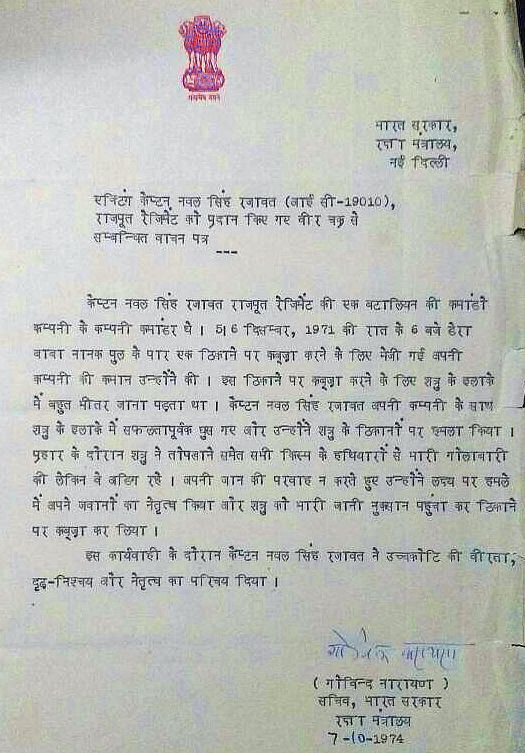 सत्यमेव जयते
भारत सरकार,
रक्षा मंत्रालय,
नई दिल्ली
एक्टिंग केप्टन नवल सिंह रजावत (आई सी-19010),
राजपूत रेजिमेंट को प्रदान किए गए वीर चक्र से
सम्बन्धित वाचन पत्र
---
केप्टन नवल सिंह रजावत राजपूत रेजिमेंट की एक बटालियन की कमांडो
कम्पनी के कम्पनी कमांडर थे । 5/6 दिसम्बर, 1971 की रात के 6 बजे डेरा
बाबा नानक पुल के पार एक ठिकाने पर कब्ज़ा करने के लिए भेजी गई अपनी
कम्पनी की कमान उन्होंने की । इस ठिकाने पर कब्ज़ा करने के लिए शत्रु के इलाके
में बहुत भीतर जाना पड़ता था । केप्टन नवल सिंह रजावत अपनी कम्पनी के साथ
शत्रु के इलाके में सफलतापूर्वक घुस गए और उन्होंने शत्रु के ठिकानों पर हमला किया ।
प्रहार के दौरान शत्रु ने तोपखाने समेत सभी किस्म के हथियारों से भारी गोलाबारी
की लेकिन वे अडिग रहे । अपनी जान की परवाह न करते हुए उन्होंने लक्ष्य पर हमले
में अपने जवानों का नेतृत्व किया और शत्रु को भारी जानी नुक़सान पहुंचा कर ठिकाने
पर कब्ज़ा कर लिया ।
इस कार्यवाही के दौरान केप्टन नवल सिंह रजावत ने उच्चकोटि की वीरता,
दृढ़-निश्चय और नेतृत्व का परिचय दिया ।
गोविन्द नारायण
( गोविन्द नारायण )
सचिव, भारत सरकार
रक्षा मंत्रालय
7-10-1974